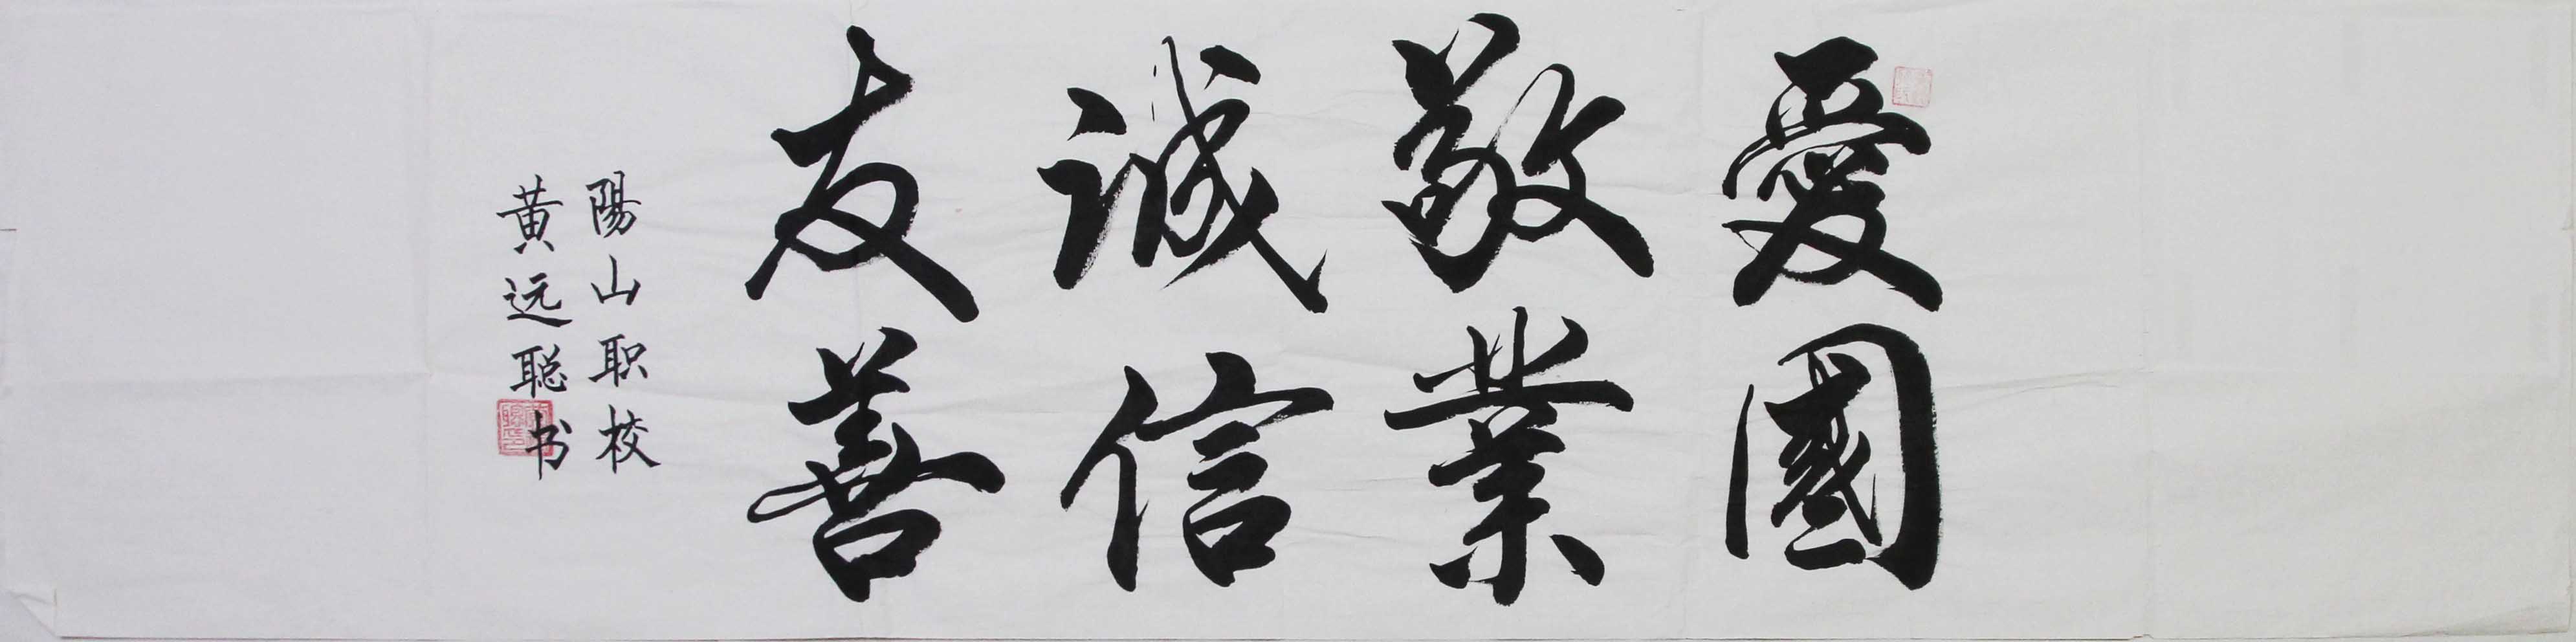 愛國
敬業
诚信
友善
陽山职校
黄远聪书